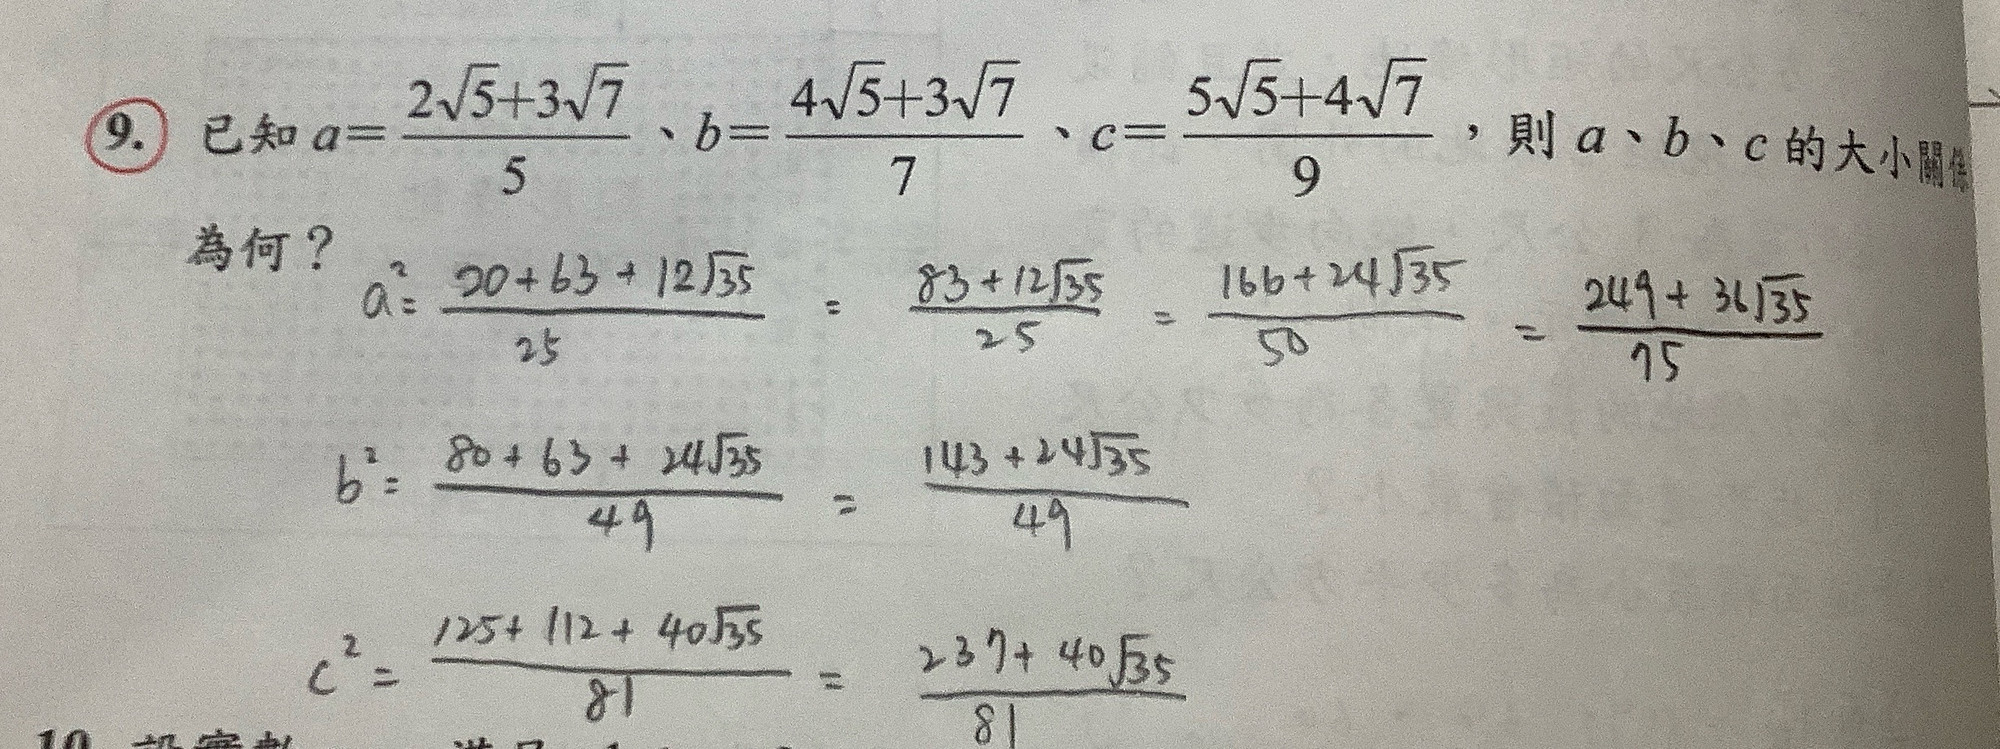 9. 已知 a=(2√5+3√7)/5、b=(4√5+3√7)/7、c=(5√5+4√7)/9，則 a、b、c 的大小關係
為何？
a²= (20+63+12√35)/25 = (83+12√35)/25 = (166+24√35)/50 = (249+36√35)/75
b²= (80+63+24√35)/49 = (143+24√35)/49
c²= (125+112+40√35)/81 = (237+40√35)/81
10.